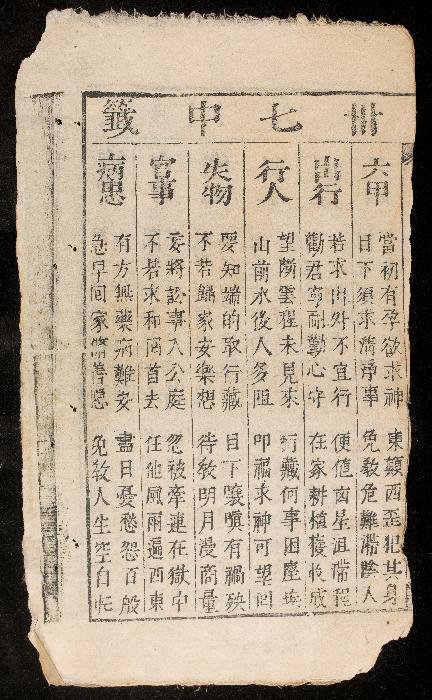 卅七中籤
六甲
當初有孕欲求神 東顛西歪犯其身
目下須求清淨事 免教危難滯陰人
出行
若求出外不宜行 便值凶星沮滯程
勸君寧耐勤心守 在家耕植穫收成
行人
望斷雲程未見來 行藏何事困塵埃
山前水後人多阻 叩福求神可望囘
失物
要知端的取行藏 目下嗔有禍殃
不若歸家安樂想 待教明月漫商量
官事
妄將訟事入公庭 忽被牽連在獄中
不若求和兩首去 任他風雨遍西東
病患
有方無藥病難安 盡日憂愁怨百般
急早回家脩善 免教人生空自忙